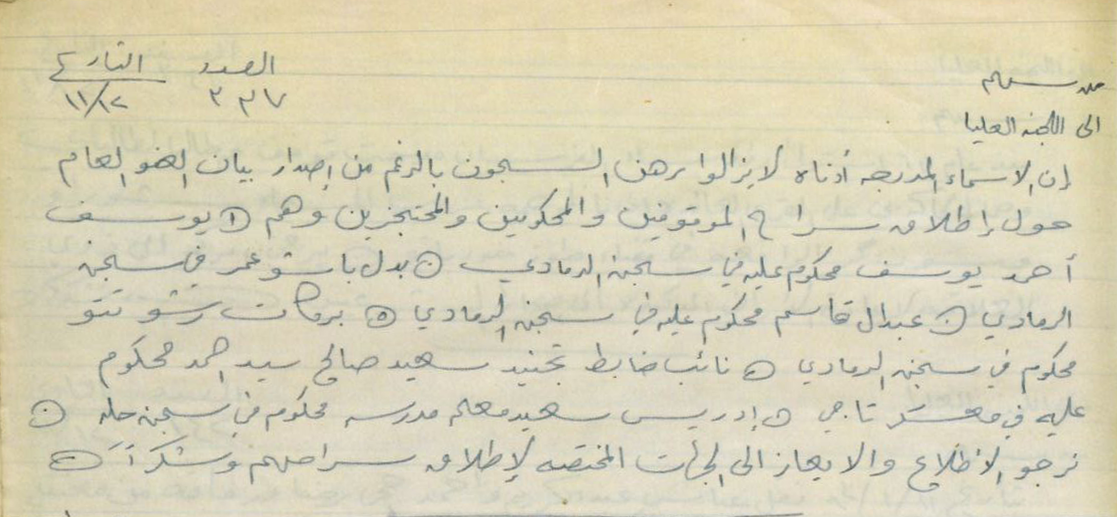 العدد التاريخ
٢٣٧ ١١/١٢
من
الى اللجنه العليا
إن الاسماء المدرجه أدناه لا يزالوا رهن السجون بالرغم من إصدار بيان العفو العام
حول إطلاق سراح الموقوفين والمحكومين والمحتجزين وهم ⊙ يوسف
أحمد يوسف محكوم عليه في سجن الرمادي ⊙ بدل عمر في سجن
الرمادي ⊙ عبدال قاسم محكوم عليه في سجن الرمادي ⊙ بركات رشو
محكوم في سجن الرمادي ⊙ نائب ضابط تجنيد سعيد صالح سيد احمد محكوم
عليه في معسكر تاجي ⊙ إدريس سعيد معلم مدرسه محكوم في سجن حله ⊙
نرجو الاطلاع والايعاز الى الجهات المختصه لإطلاق سراحهم وشكراً ⊙